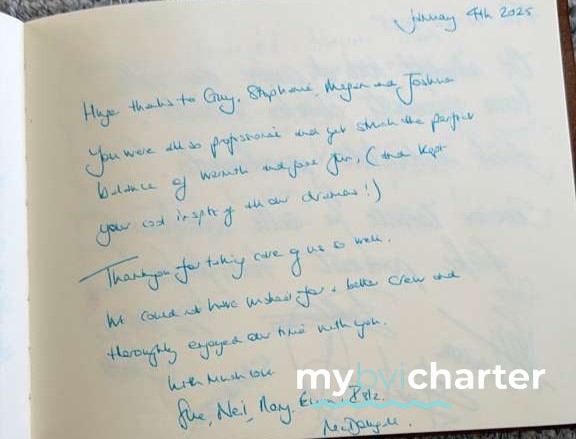 January 4th 2025
Huge thanks to Guy, Stephanie, Megan and Joshua
You were all so professional and yet struck the perfect
balance of warmth and fun, (and kept
your cool inspite of all our dramas!)
Thankyou for taking care of us so well.
We could not have wished for a better crew and
thoroughly enjoyed our time with you.
With much love
Sue, Neil, Mary,
mybvicharter